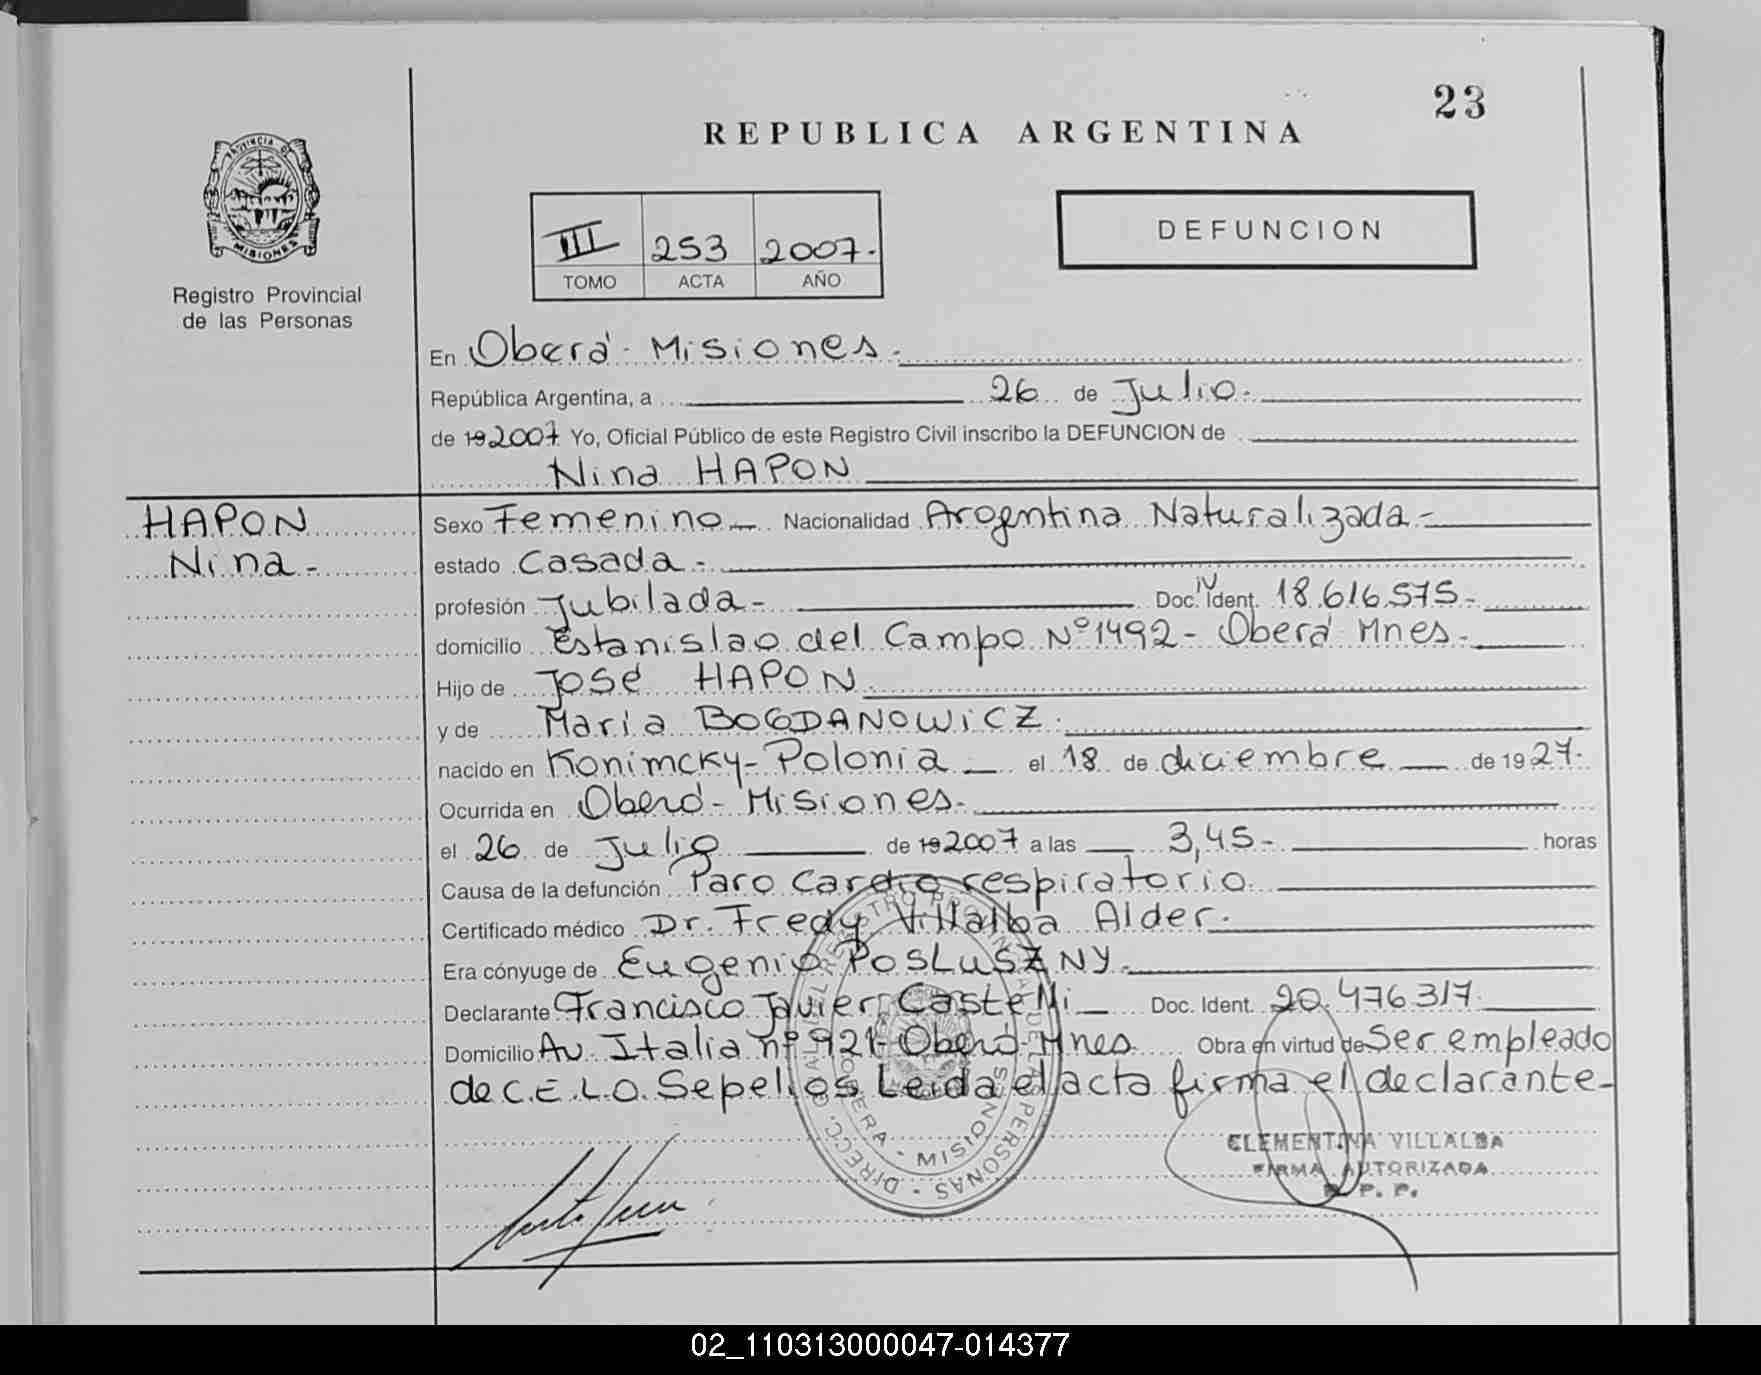 23
REPUBLICA ARGENTINA
PROVINCIA DE
MISIONES
Registro Provincial
de las Personas
III 253 2007.-
TOMO ACTA AÑO
DEFUNCION
En Oberá - Misiones.-
República Argentina, a 26 de Julio.-
de 19 2007 Yo, Oficial Público de este Registro Civil inscribo la DEFUNCION de
Nina HAPON
HAPON
Nina -
Sexo Femenino Nacionalidad Argentina Naturalizada -
estado Casada -
profesión Jubilada - Doc. Ident. 18.616.575 -
domicilio Estanislao del Campo Nº 1492 - Oberá Mnes.-
Hijo de José HAPON
y de Maria BOGDANOWICZ.
nacido en Konimcky - Polonia el 18 de diciembre de 19 27.
Ocurrida en Oberá - Misiones.-
el 26 de Julio de 19 2007 a las 3,45 - horas
Causa de la defunción Paro Cardio respiratorio
Certificado médico Dr. Fredy Villalba Alder.
Era cónyuge de Eugenio POSLUSZNY.-
Declarante Francisco Javier Castelli Doc. Ident. 20.476.317
Domicilio Av. Italia nº 921 - Oberá Mnes Obra en virtud de Ser empleado
de C.E.L.O. Sepelios Leida el acta firma el declarante -
DIRECC. REGISTRO PROVINCIAL DE LAS PERSONAS
MISIONES
CLEMENTINA VILLALBA
FIRMA AUTORIZADA
R. P. P.
02_110313000047-014377